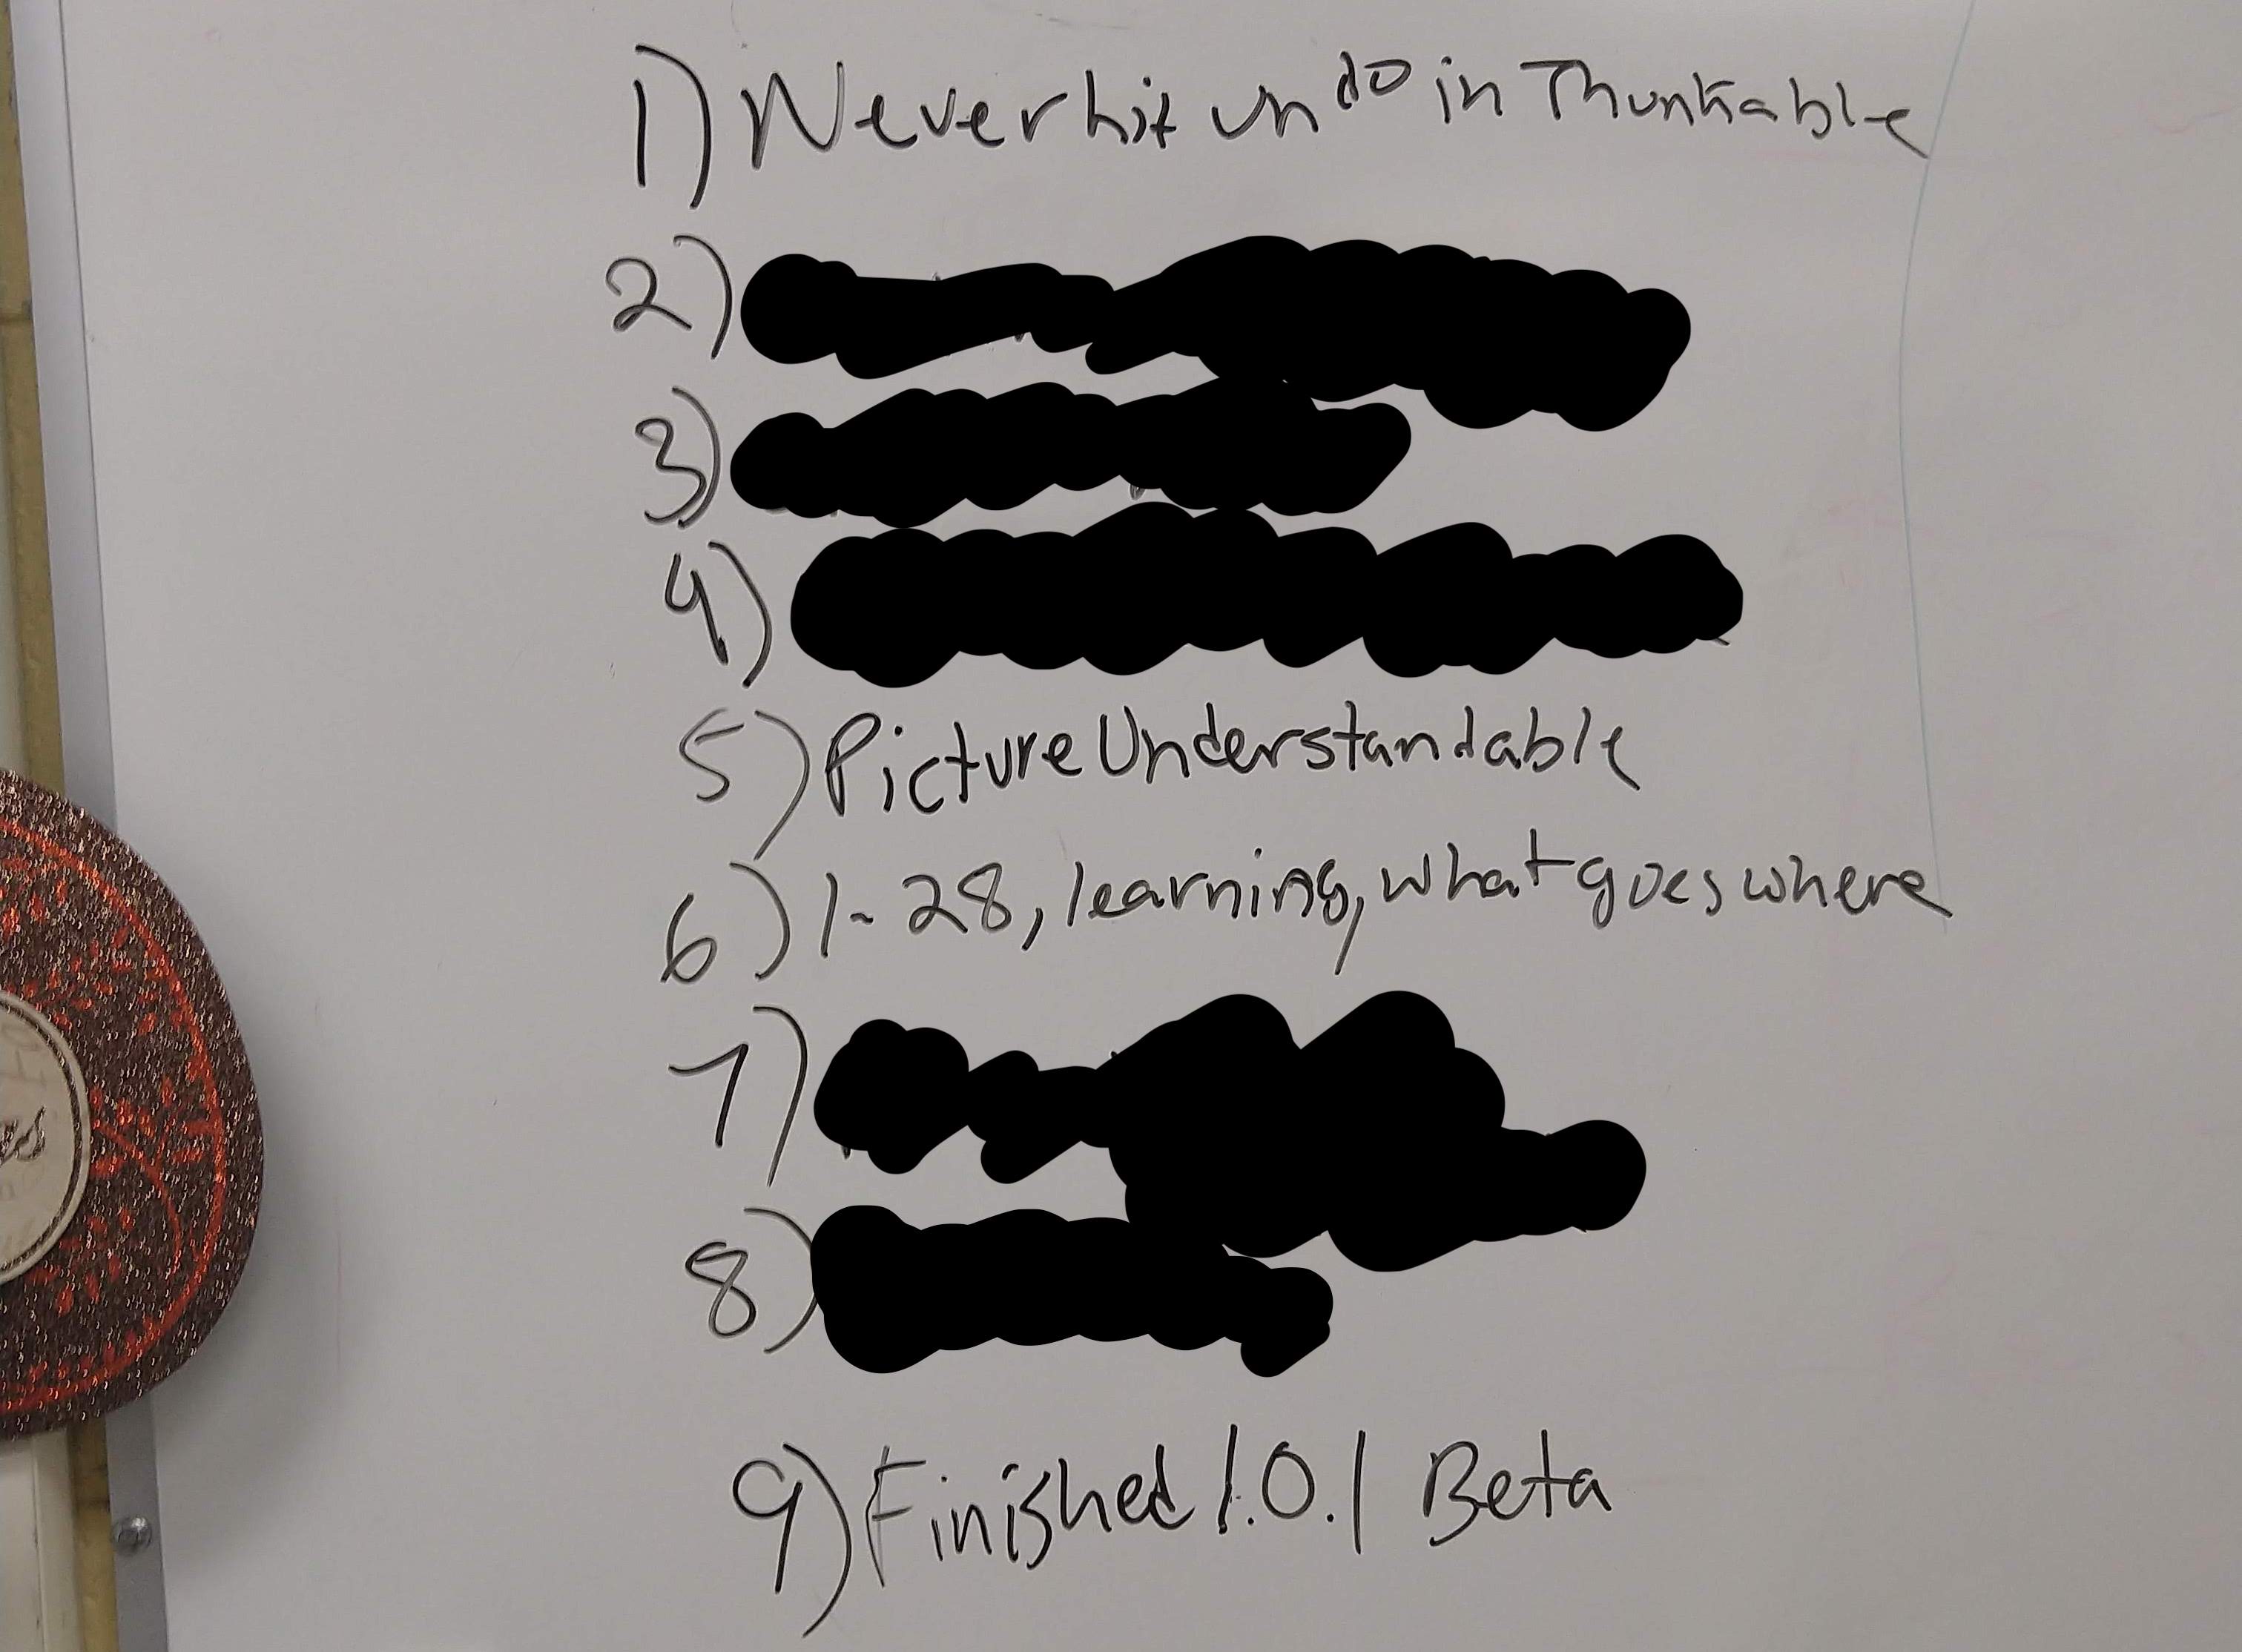 1) Never hit undo in Thunkable
2)
3)
4)
5) Picture Understandable
6) 1-28, learning, what goes where
7)
8)
9) Finished 1.0.1 Beta
es